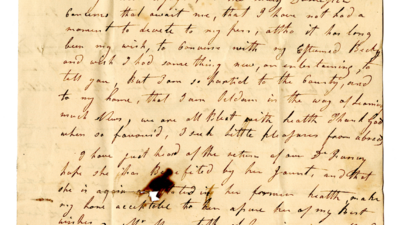 concerns that await me, that I have not had a
moment to devote to my pen, altho it has long
been my wish, to Converse with my Esteemed Becky
and wish I had something new, or entertaining, to
tell you but I am so partial to the Country, and
to my home, that I am seldom in the way of
much News, we are all Blest with health Thank God
when so favourd, I seek little pleasures from abroad
I have just heard of the return of our Dr
hope she has Benefited by her Jaunts, and that
she is again in her former health, make
my love acceptable to her assure her of my Best
wishes